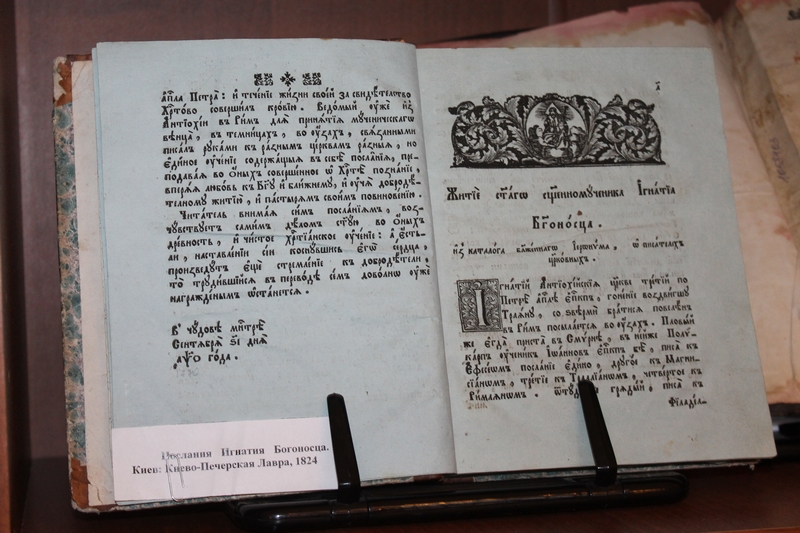 а҆пⷭ҇ла Петра̀: и҆ тече́нїе жи́зни своѐй за свидѣ́тельство
Хрⷭ҇то́во соверши́лъ кро́вїю. Ведо́мый ᲂу҆жѐ и҆з̾
Антїохі́и въ Ри́мъ для приня́тїѧ мꙋ́ченическагѡ
вѣнца̀, въ темни́цахъ, во ᲂу҆́захъ, свѧ́занными
писа́лъ рꙋка́ми къ ра́знымъ цр҃квамъ ра́зныѧ, но
є҆ди́ное ᲂу҆че́нїе содержа́щыѧ въ себѣ̀ посла̑нїѧ, пре-
подава́ѧ во ѻ҆́ныхъ соверше́нное ѡ҆ Хрⷭ҇тѣ̀ позна́нїе,
вперѧ́ѧ любо́вь къ Бг҃ꙋ и҆ бли́жнемꙋ, и҆ ᲂу҆ча̀ добродѣ́-
тельномꙋ житїю̀, и҆ па́стырѧмъ свои̑мъ повинове́нїю.
Чита́тель внима́ѧ си̑мъ посла́нїѧмъ, воз-
чꙋ́вствꙋетъ сами́мъ дѣ́ломъ ст҃ꙋ́ю во ѻ҆́ныхъ
дре́вность, и҆ чи́стое Хрⷭ҇тїа́нское ᲂу҆че́нїе: а҆ є҆́сть-
ли, наставле́нїи сїѝ коснꙋ́вшись є҆гѡ̀ се́рдца,
произведꙋ́тъ є҆щѐ стремле́нїе къ добродѣ́тели,
то трꙋди́вшїйсѧ въ перево́дѣ се́мъ дово́льно ᲂу҆жѐ
награжде́ннымъ ѡ҆ста́нетсѧ.
въ Чꙋ́довѣ мн҃трѣ̀
Сентѧбрѧ̀ днѧ̀
го́да.
а҃
Житїѐ ст҃а́гѡ сщ҃енномꙋ́ченика І҆гна́тїа
Бг҃оно́сца.
и҆з̾ катало́га бл҃же́ннагѡ І҆ерѡ́нѵма, ѡ҆ писа́телѧхъ
цр҃ко́вныхъ.
І҆гна́тїй Антїохі́йскїѧ цр҃кве тре́тїй по
Петрѣ̀ а҆пⷭ҇лѣ є҆пⷭ҇кпъ, гоне́нїе воздви́гшꙋ
Траѧ́нꙋ, со ѕвѣрмѝ бра́тисѧ повелѣ́нъ
въ Ри́мъ посыла́етсѧ во ᲂу҆́захъ. Пловы́й
же є҆гда̀ приста̀ въ Смѵ́рнѣ, въ не́йже Полꙋ-
ка́рпъ ᲂу҆чени́къ І҆ѡа́нновъ є҆пⷭ҇кпъ бѣ̀, писа̀ къ
Є҆фесе́ѡмъ посла́нїе є҆ди́но, дрꙋго́е къ Магни-
сїа́нѡмъ, тре́тїе къ Тралїа́нѡмъ, четве́ртое къ
Ри́млѧнѡмъ. ѿтꙋ́дꙋ грѧды́й, писа̀ къ
Фїладел-
Послания Игнатия Богоносца.
Киев: Киево-Печерская Лавра, 1824